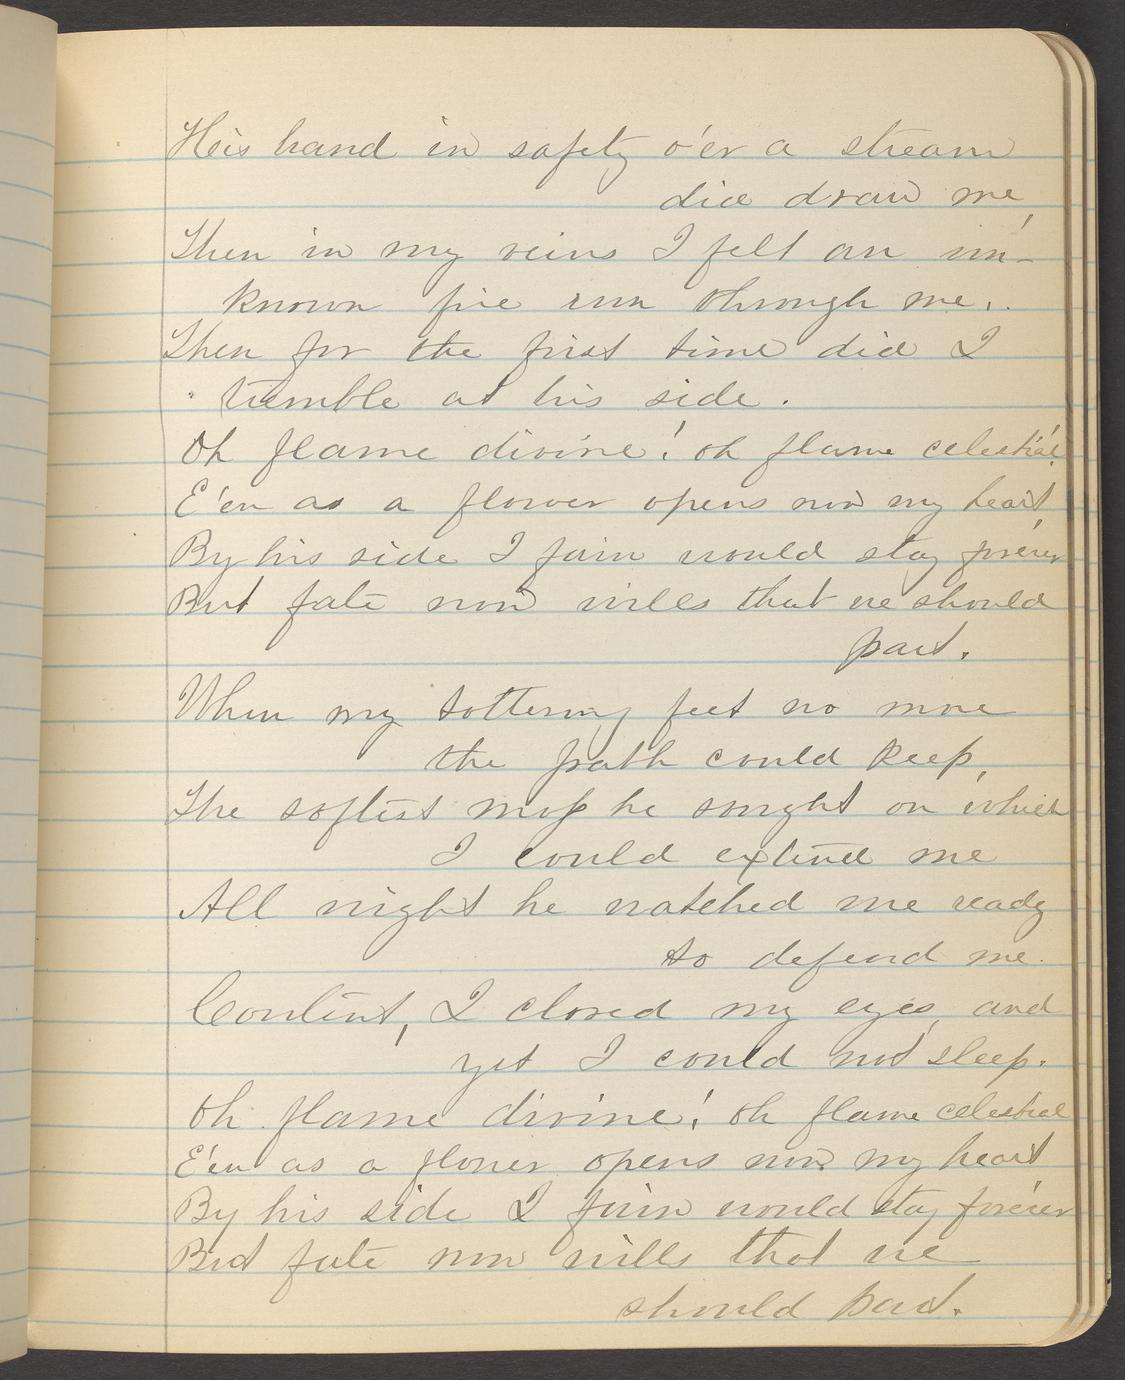 His hand in safety o'er a stream
did draw me,
Then in my veins I felt an un-
known fire run through me.
Then for the first time did I
tremble at his side.
Oh flame divine! oh flame celestial!
E'en as a flower opens now my heart,
By his side I fain would stay fore'er
But fate now wills that we should
part.
When my tottering feet no more
the path could keep,
The softest moss he sought on which
I could extend me
All night he watched me ready
to defend me.
Content, I closed my eyes, and
yet I could not sleep.
Oh flame divine! Oh flame celestial
E'en as a flower opens now my heart
By his side I fain would stay fore'er
But fate now wills that we
should part.